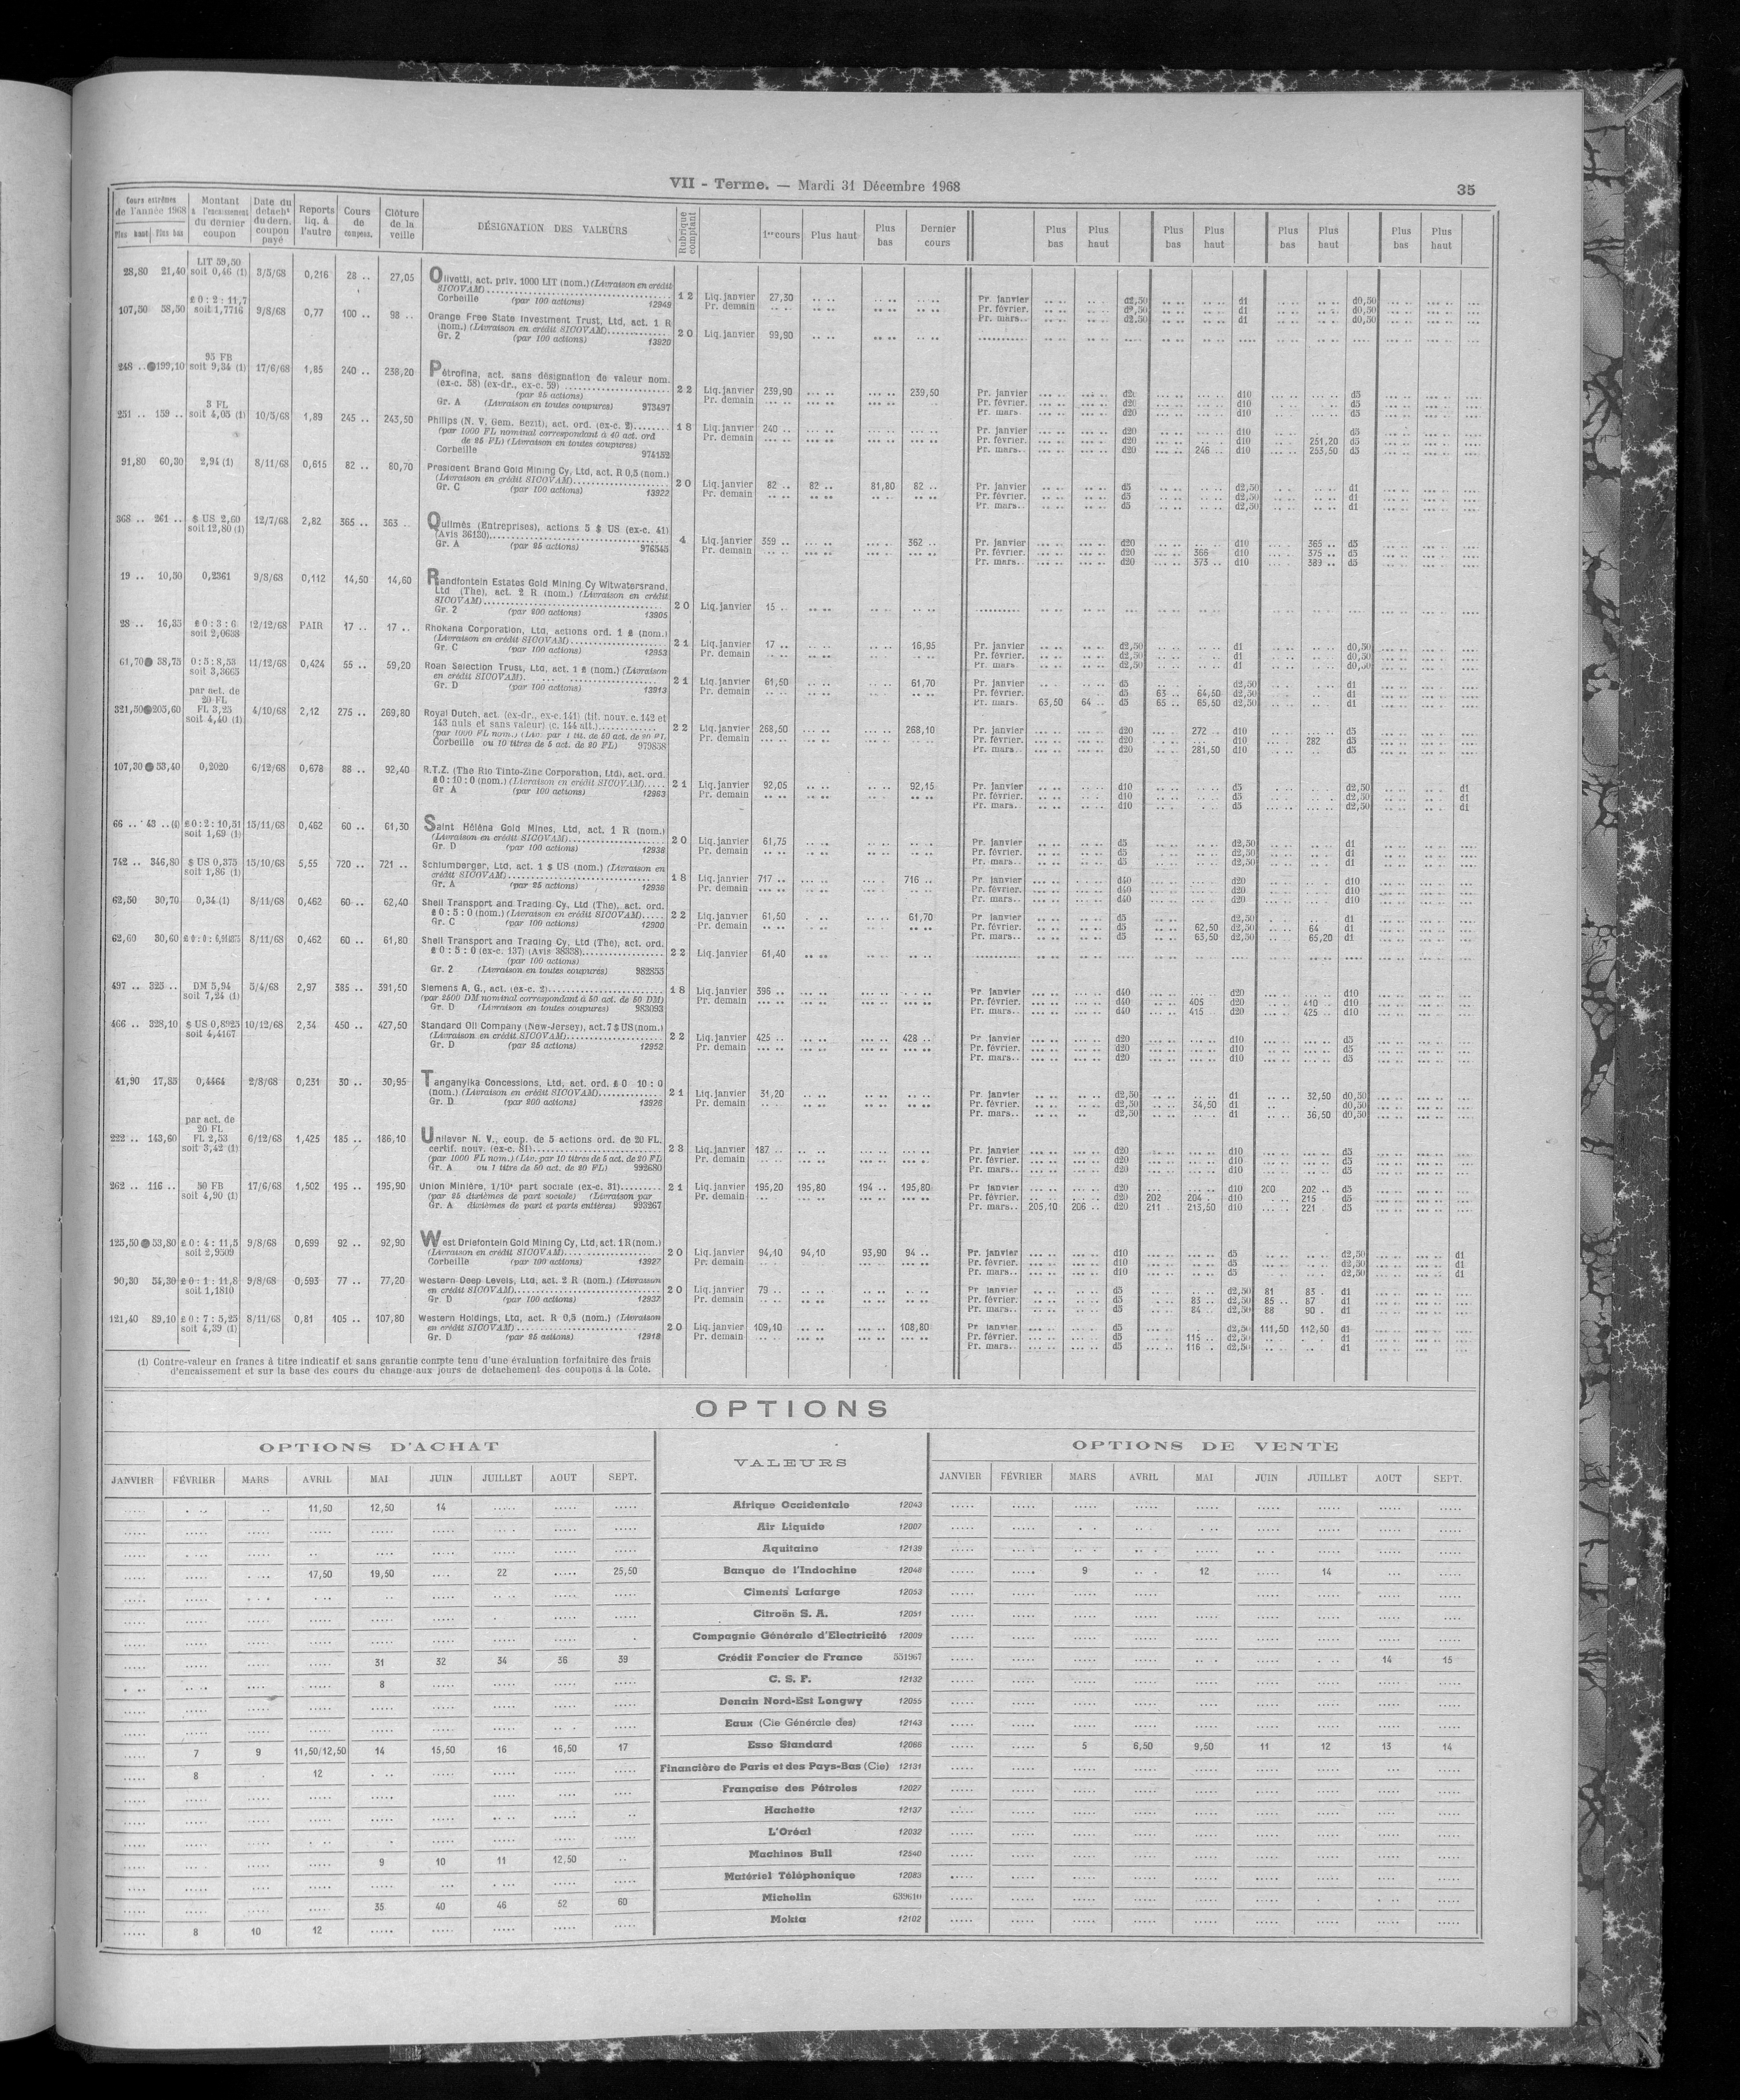 VII - Terme. — Mardi 31 Décembre 1968
35
Cours extrêmes de l'année 1968 Plus haut Plus bas | Montant à l'encaissement du dernier coupon | Date du détach^t du dern. coupon payé | Reports liq. à l'autre | Cours de compens. | Clôture de la veille | DÉSIGNATION DES VALEURS | Rubrique comptant | 1er cours | Plus haut | Plus bas | Dernier cours | Plus bas | Plus haut | Plus bas | Plus haut | Plus bas | Plus haut | Plus bas | Plus haut
LIT 59,50
28,80 21,40 soit 0,46 (1) 3/5/68 0,216 28 .. 27,05 Olivetti, act. priv. 1000 LIT (nom.) (Livraison en crédit
SICOVAM)
Corbeille (par 100 actions) 12949 12 Liq. janvier 27,30 Pr. janvier d2,50 d1 d0,50
Pr. demain Pr. février. d2,50 d1 d0,50
Pr. mars.. d2,50 d1 d0,50
£ 0 : 2 : 11,7
107,50 58,50 soit 1,7716 9/8/68 0,77 100 .. 98 .. Orange Free State Investment Trust, Ltd, act. 1 R
(nom.) (Livraison en crédit SICOVAM)
Gr. 2 (par 100 actions) 13920 20 Liq. janvier 99,90
95 FB
248 .. 199,10 soit 9,34 (1) 17/6/68 1,85 240 .. 238,20 Pétrofina, act. sans désignation de valeur nom.
(ex-c. 58) (ex-dr., ex-c. 59)
(par 25 actions)
Gr. A (Livraison en toutes coupures) 973497 22 Liq. janvier 239,90 239,50 Pr. janvier d20 d10 d5
Pr. demain Pr. février. d20 d10 d5
Pr. mars. d20 d10 d5
3 FL
251 .. 159 .. soit 4,05 (1) 10/5/68 1,89 245 .. 243,50 Philips (N. V. Gem. Bezit), act. ord. (ex-c. 2)
(par 1000 FL nominal correspondant à 40 act. ord
de 25 FL) (Livraison en toutes coupures)
Corbeille 974152 18 Liq. janvier 240 .. Pr. janvier d20 d10 d5
Pr. demain Pr. février. d20 d10 251,20 d5
Pr. mars.. d20 246 .. d10 253,50 d5
91,80 60,30 2,94 (1) 8/11/68 0,615 82 .. 80,70 President Brand Gold Mining Cy, Ltd, act. R 0,5 (nom.)
(Livraison en crédit SICOVAM)
Gr. C (par 100 actions) 13922 20 Liq. janvier 82 .. 82 .. 81,80 82 .. Pr. janvier d5 d2,50 d1
Pr. demain Pr. février. d5 d2,50 d1
Pr. mars.. d5 d2,50 d1
368 .. 261 .. $ US 2,60 soit 12,80 (1) 12/7/68 2,82 365 .. 363 .. Quilmès (Entreprises), actions 5 $ US (ex-c. 41)
(Avis 36130)
Gr. A (par 25 actions) 976345 4 Liq. janvier 359 .. 362 .. Pr. janvier d20 d10 365 .. d5
Pr. demain Pr. février. d20 366 d10 375 .. d5
Pr. mars.. d20 373 .. d10 389 .. d5
19 .. 10,50 0,2361 9/8/68 0,112 14,50 14,60 Randfontein Estates Gold Mining Cy Witwatersrand,
Ltd (The), act. 2 R (nom.) (Livraison en crédit
SICOVAM)
Gr. 2 (par 200 actions) 13905 20 Liq. janvier 15 ..
28 .. 16,35 £ 0 : 3 : 6 soit 2,0638 12/12/68 PAIR 17 .. 17 .. Rhokana Corporation, Ltd, actions ord. 1 £ (nom.)
(Livraison en crédit SICOVAM)
Gr. C (par 100 actions) 12953 21 Liq. janvier 17 .. 16,95 Pr. janvier d2,50 d1 d0,50
Pr. demain Pr. février. d2,50 d1 d0,50
Pr. mars. d2,50 d1 d0,50
61,70 38,75 0 : 5 : 8,53 soit 3,3665 11/12/68 0,424 55 .. 59,20 Roan Selection Trust, Ltd, act. 1 £ (nom.) (Livraison
en crédit SICOVAM).
Gr. D (par 100 actions) 13913 21 Liq. janvier 61,50 61,70 Pr. janvier d5 d2,50 d1
Pr. demain Pr. février. d5 63 .. 64,50 d2,50 d1
Pr. mars. 63,50 64 .. d5 65 .. 65,50 d2,50 d1
par act. de
20 FL
321,50 205,60 FL 3,25 soit 4,40 (1) 4/10/68 2,12 275 .. 269,80 Royal Dutch, act. (ex-dr., ex-c. 141) (tit. nouv. c. 142 et
143 nuls et sans valeur) (c. 144 att.)
(par 1000 FL nom.) (Liv. par 1 tit. de 50 act. de 20 FL
Corbeille ou 10 titres de 5 act. de 20 FL) 979858 22 Liq. janvier 268,50 268,10 Pr. janvier d20 272 .. d10 d5
Pr. demain Pr. février. d20 d10 282 d5
Pr. mars.. d20 281,50 d10 d5
107,30 53,40 0,2020 6/12/68 0,678 88 .. 92,40 R.T.Z. (The Rio Tinto-Zinc Corporation, Ltd), act. ord.
£ 0 : 10 : 0 (nom.) (Livraison en crédit SICOVAM)
Gr A (par 100 actions) 12963 21 Liq. janvier 92,05 92,15 Pr. janvier d10 d5 d2,50 d1
Pr. demain Pr. février. d10 d5 d2,50 d1
Pr. mars.. d10 d5 d2,50 d1
66 .. 43 .. (1) £ 0 : 2 : 10,51 soit 1,69 (1) 15/11/68 0,462 60 .. 61,30 Saint Héléna Gold Mines, Ltd, act. 1 R (nom.)
(Livraison en crédit SICOVAM)
Gr. D (par 100 actions) 12938 20 Liq. janvier 61,75 Pr. janvier d5 d2,50 d1
Pr. demain Pr. février. d5 d2,50 d1
Pr. mars.. d5 d2,50 d1
742 .. 346,80 $ US 0,375 soit 1,86 (1) 15/10/68 5,55 720 .. 721 .. Schlumberger, Ltd, act. 1 $ US (nom.) (Livraison en
crédit SICOVAM)
Gr. A (par 25 actions) 12936 18 Liq. janvier 717 .. 716 .. Pr. janvier d40 d20 d10
Pr. demain Pr. février. d40 d20 d10
Pr. mars.. d40 d20 d10
62,50 30,70 0,34 (1) 8/11/68 0,462 60 .. 62,40 Shell Transport and Trading Cy, Ltd (The), act. ord.
£ 0 : 5 : 0 (nom.) (Livraison en crédit SICOVAM)
Gr. C (par 100 actions) 12900 22 Liq. janvier 61,50 61,70 Pr janvier d5 d2,50 d1
Pr. demain Pr. février. d5 62,50 d2,50 64 d1
Pr. mars.. d5 63,50 d2,50 65,20 d1
62,60 30,60 8/11/68 0,462 60 .. 61,80 Shell Transport and Trading Cy, Ltd (The), act. ord.
£ 0 : 5 : 0 (ex-c. 137) (Avis 38338)
(par 100 actions)
Gr. 2 (Livraison en toutes coupures) 982855 22 Liq. janvier 61,40
497 .. 325 .. DM 5,94 soit 7,24 (1) 5/4/68 2,97 385 .. 391,50 Siemens A. G., act. (ex-c. 2)
(par 2500 DM nominal correspondant à 50 act. de 50 DM)
Gr. D (Livraison en toutes coupures) 983093 18 Liq. janvier 396 .. Pr janvier d40 d20 d10
Pr. demain Pr. février. d40 405 d20 410 .. d10
Pr. mars.. d40 415 d20 425 .. d10
466 .. 328,10 $ US 0,8925 soit 4,4167 10/12/68 2,34 450 .. 427,50 Standard Oil Company (New-Jersey), act. 7 $ US (nom.)
(Livraison en crédit SICOVAM)
Gr. D (par 25 actions) 12952 22 Liq. janvier 425 .. 428 .. Pr janvier d20 d10 d5
Pr. demain Pr. février. d20 d10 d5
Pr. mars.. d20 d10 d5
41,90 17,85 0,4464 2/8/68 0,231 30 .. 30,95 Tanganyika Concessions, Ltd, act. ord. £ 0 10 : 0
(nom.) (Livraison en crédit SICOVAM)
Gr. D (par 200 actions) 13926 21 Liq. janvier 31,20 Pr. janvier d2,50 d1 32,50 d0,50
Pr. demain Pr. février. d2,50 34,50 d1 d0,50
Pr. mars.. d2,50 d1 36,50 d0,50
par act. de
20 FL
222 .. 143,60 FL 2,53 soit 3,42 (1) 6/12/68 1,425 185 .. 186,10 Unilever N. V., coup. de 5 actions ord. de 20 FL,
certif. nouv. (ex-c. 81)
(par 1000 FL nom.) (Liv. par 10 titres de 5 act. de 20 FL
Gr. A ou 1 titre de 50 act. de 20 FL) 992680 23 Liq. janvier 187 .. Pr. janvier d20 d10 d5
Pr. demain Pr. février. d20 d10 d5
Pr. mars.. d20 d10 d5
262 .. 116 .. 50 FB soit 4,90 (1) 17/6/68 1,502 195 .. 195,90 Union Minière, 1/10e part sociale (ex-c. 31)
(par 25 dixièmes de part sociale) (Livraison par
Gr. A dixièmes de part et parts entières) 993267 21 Liq. janvier 195,20 195,80 194 .. 195,80 Pr janvier d20 d10 200 202 .. d5
Pr. demain Pr. février. d20 202 204 . d10 215 d5
Pr. mars.. 205,10 206 .. d20 211 213,50 d10 221 d5
125,50 53,80 £ 0 : 4 : 11,5 soit 2,9509 9/8/68 0,699 92 .. 92,90 West Driefontein Gold Mining Cy, Ltd, act. 1 R (nom.)
(Livraison en crédit SICOVAM)
Corbeille (par 100 actions) 13927 20 Liq. janvier 94,10 94,10 93,90 94 .. Pr. janvier d10 d5 d2,50 d1
Pr. demain Pr. février. d10 d5 d2,50 d1
Pr. mars.. d10 d5 d2,50 d1
90,30 54,30 £ 0 : 1 : 11,8 soit 1,1810 9/8/68 0,593 77 .. 77,20 Western Deep Levels, Ltd, act. 2 R (nom.) (Livraison
en crédit SICOVAM)
Gr. D (par 100 actions) 12937 20 Liq. janvier 79 .. Pr janvier d5 d2,50 81 83 . d1
Pr. demain Pr. février. d5 83 .. d2,50 85 .. 87 d1
Pr. mars.. d5 84 .. d2,50 88 90 . d1
121,40 89,10 £ 0 : 7 : 5,25 soit 4,39 (1) 8/11/68 0,81 105 .. 107,80 Western Holdings, Ltd, act. R 0,5 (nom.) (Livraison
en crédit SICOVAM)
Gr. D (par 25 actions) 12918 20 Liq. janvier 109,10 108,80 Pr janvier d5 d2,50 111,50 112,50 d1
Pr. demain Pr. février. d5 115 .. d2,50 d1
Pr. mars.. d5 116 .. d2,50 d1
(1) Contre-valeur en francs à titre indicatif et sans garantie compte tenu d'une évaluation forfaitaire des frais
d'encaissement et sur la base des cours du change aux jours de détachement des coupons à la Cote.
OPTIONS
OPTIONS D'ACHAT | VALEURS | OPTIONS DE VENTE
JANVIER FÉVRIER MARS AVRIL MAI JUIN JUILLET AOUT SEPT. | JANVIER FÉVRIER MARS AVRIL MAI JUIN JUILLET AOUT SEPT.
11,50 12,50 14 Afrique Occidentale 12043
Air Liquide 12007
Aquitaine 12139
17,50 19,50 22 25,50 Banque de l'Indochine 12048 9 12 14
Ciments Lafarge 12053
Citroën S. A. 12051
Compagnie Générale d'Electricité 12009
31 32 34 36 39 Crédit Foncier de France 551967 14 15
8 C. S. F. 12132
Denain Nord-Est Longwy 12055
Eaux (Cie Générale des) 12143
7 9 11,50/12,50 14 15,50 16 16,50 17 Esso Standard 12066 5 6,50 9,50 11 12 13 14
8 12 Financière de Paris et des Pays-Bas (Cie) 12131
Française des Pétroles 12027
Hachette 12137
L'Oréal 12032
9 10 11 12,50 Machines Bull 12540
Matériel Téléphonique 12083
35 40 46 52 60 Michelin 639610
8 10 12 Mokta 12102